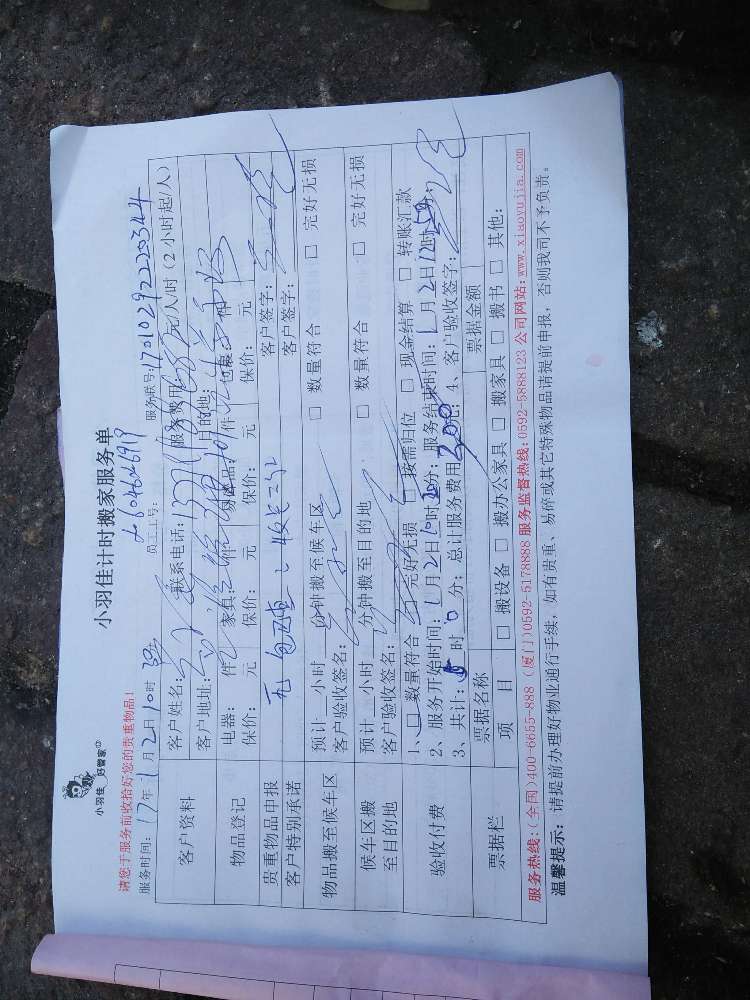 小羽佳 好管家
小羽佳计时搬家服务单
请您于服务前收拾好您的贵重物品!
服务时间: 17年 1月2日10时 员工工号: 服务联号: 1701029222 0344
客户资料 客户姓名: 联系电话: 服务费用: 元/人/时 (2小时起/人)
客户地址: 目的地:
物品登记 电器: 件 家具: 件 易碎品: 件 包裹: 件
保价: 元 保价: 元 保价: 元 保价: 元
贵重物品申报 无 客户签字:
客户特别承诺 客户签字:
物品搬至候车区 预计 小时 分钟搬至候车区 □ 数量符合 □ 完好无损
客户验收签名:
候车区搬至目的地 预计 小时 分钟搬至目的地 □ 数量符合 □ 完好无损
客户验收签名:
验收付费 1、□ 数量符合 □ 完好无损 □ 按需归位 □ 现金结算 □ 转账汇款
2、服务开始时间: 1月2日10时 分; 服务结束时间: 1月2日12时50分;
3、共计: 时 0分; 总计服务费用 200 元; 4、客户验收签字:
票据栏 票据名称 票据金额
项 目 □ 搬设备 □ 搬办公家具 □ 搬家具 □ 搬书 □ 其他:
服务热线:(全国)400-6655-888 (厦门)0592-5178888 服务监督热线:0592-5888123 公司网站:www.xiaoyujia.com
温馨提示: 请提前办理好物业通行手续, 如有贵重、易碎或其它特殊物品请提前申报, 否则我司不予负责。